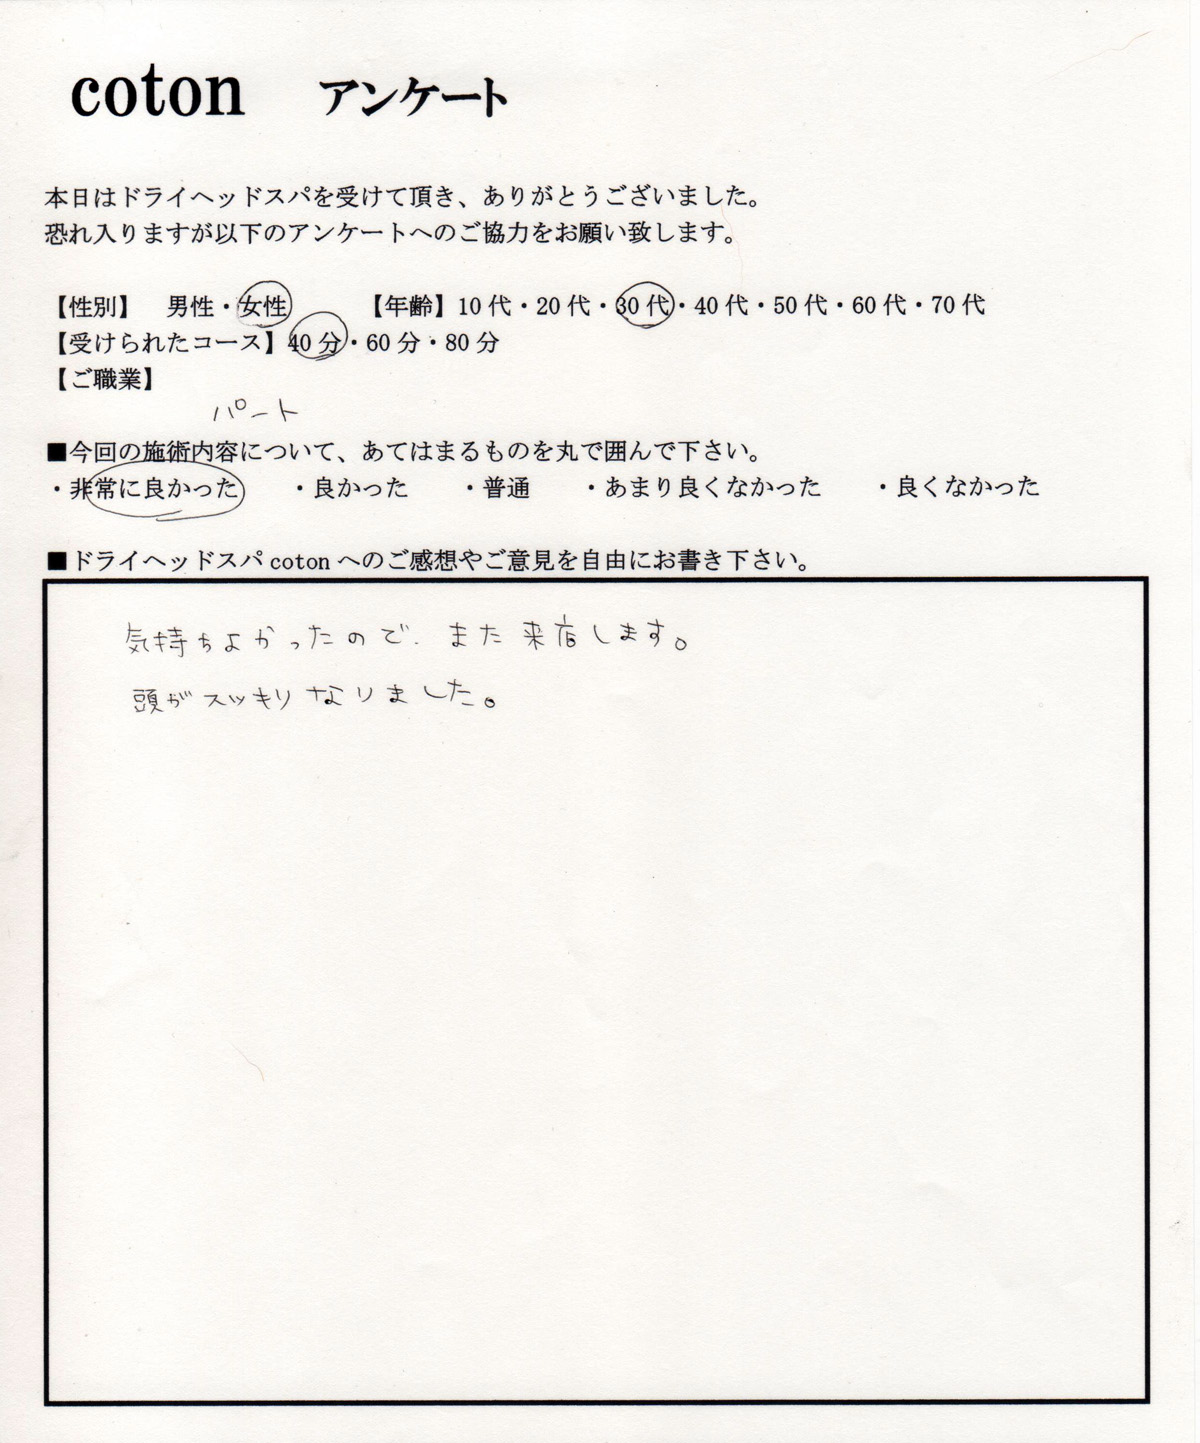 coton アンケート
本日はドライヘッドスパを受けて頂き、ありがとうございました。
恐れ入りますが以下のアンケートへのご協力をお願い致します。
【性別】 男性・女性 【年齢】10代・20代・30代・40代・50代・60代・70代
【受けられたコース】40分・60分・80分
【ご職業】
パート
■今回の施術内容について、あてはまるものを丸で囲んで下さい。
・非常に良かった ・良かった ・普通 ・あまり良くなかった ・良くなかった
■ドライヘッドスパcotonへのご感想やご意見を自由にお書き下さい。
気持ちよかったので、また来店します。
頭がスッキリなりました。